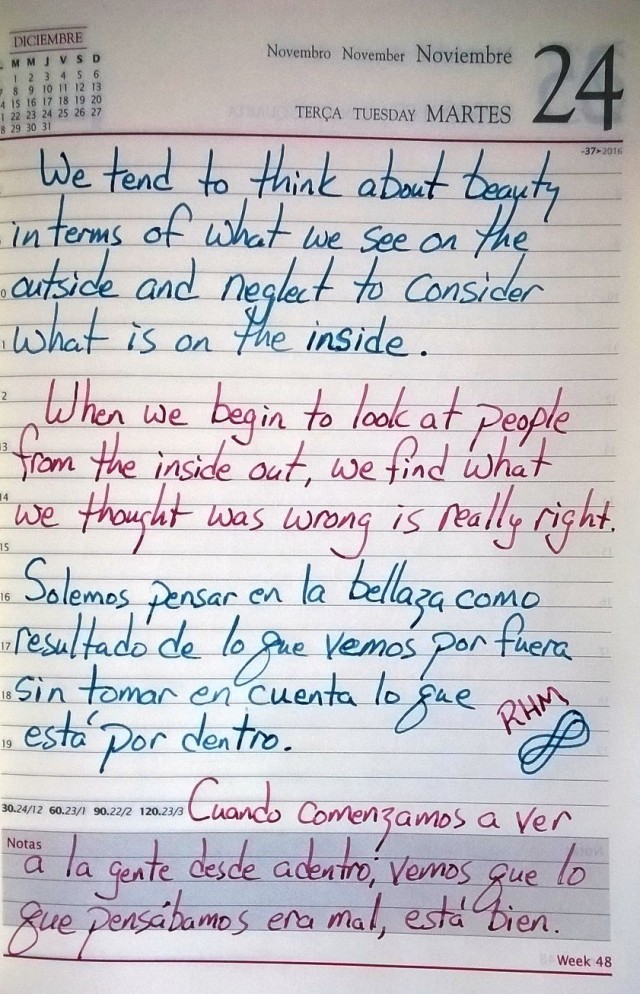 DICIEMBRE
M M J V S D
1 2 3 4 5 6
8 9 10 11 12 13
15 16 17 18 19 20
22 23 24 25 26 27
29 30 31
Novembro November Noviembre
24
TERÇA TUESDAY MARTES
-37>2016
We tend to think about beauty
in terms of what we see on the
outside and neglect to consider
what is on the inside.
When we begin to look at people
from the inside out, we find what
we thought was wrong is really right.
Solemos pensar en la bellaza como
resultado de lo que vemos por fuera
sin tomar en cuenta lo que
está por dentro.
RHM
30.24/12 60.23/1 90.22/2 120.23/3
Cuando comenzamos a ver
Notas
a la gente desde adentro, vemos que lo
que pensábamos era mal, está bien.
Week 48